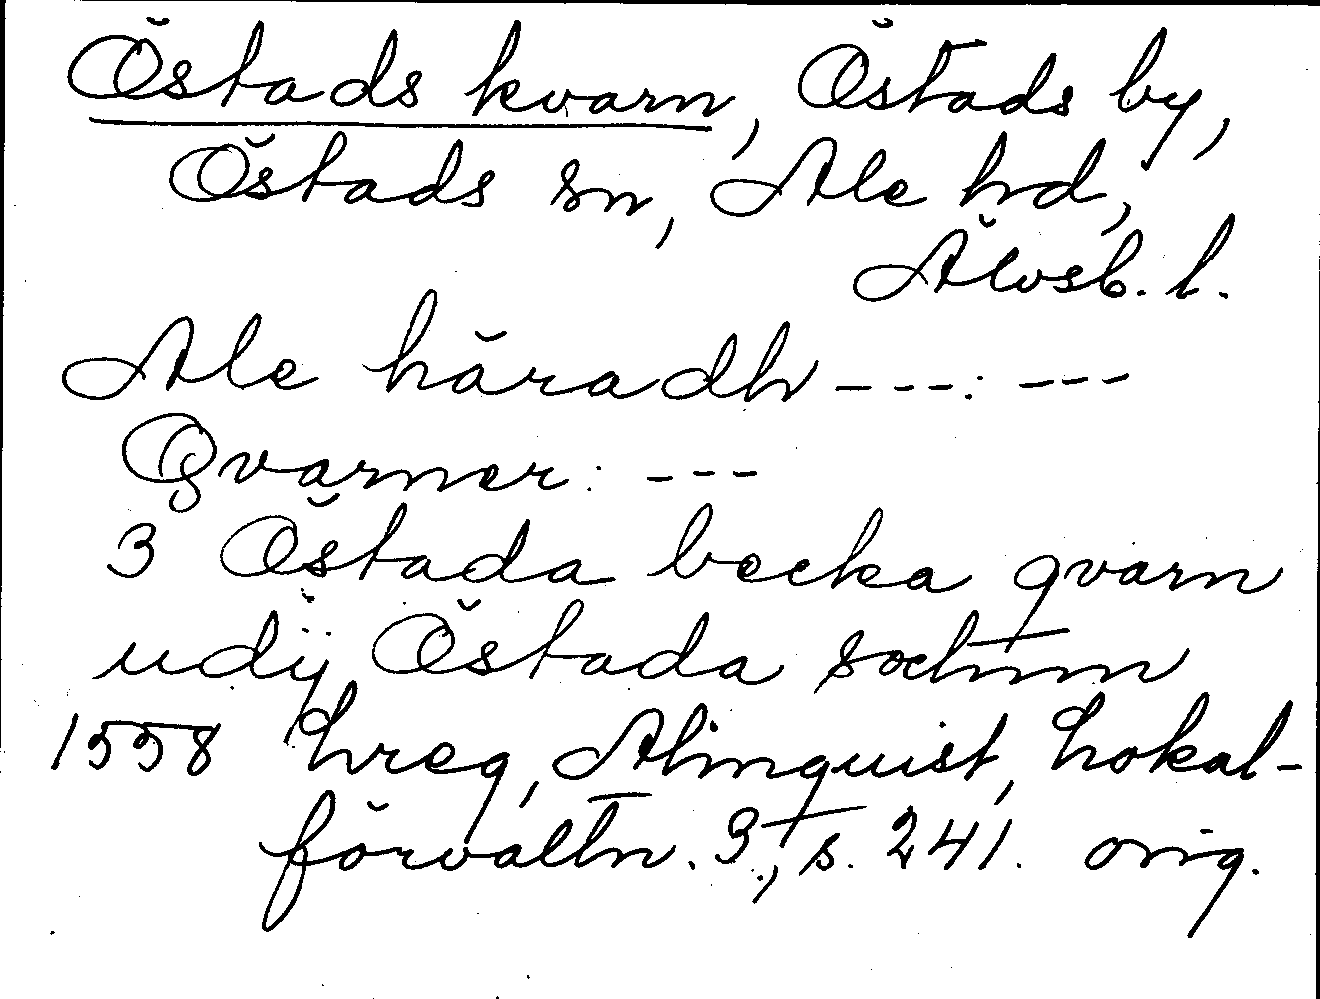 Östads kvarn, Östads by,
Östads sn, Ale hd,
Älvsb. l.
Ale häradh ---: ---
Qvarner: ---
3 Östada becka qvarn
udij Östada sochnn
1558 hreg, Almquist, Lokal-
förvaltn. 3, s. 241. orig.